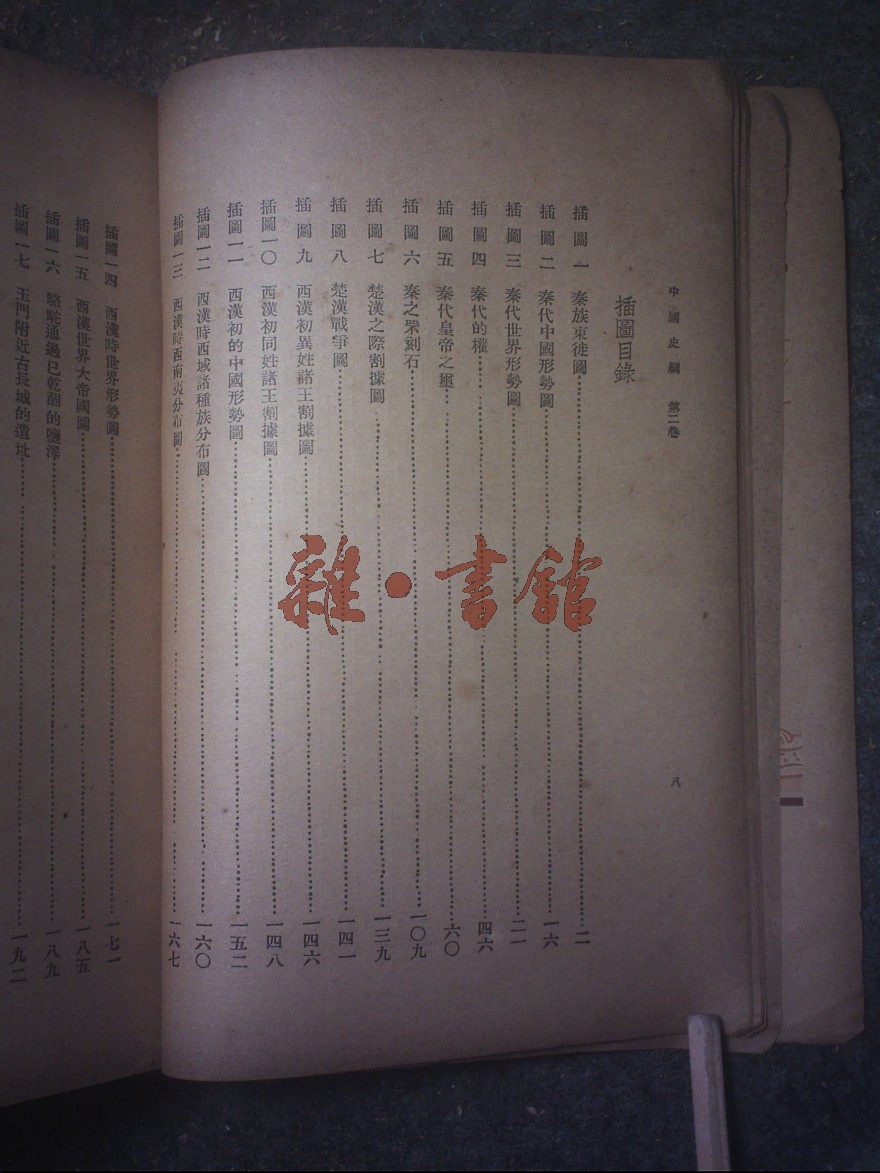 中國史綱 第二卷 八
插圖目錄
插圖一 秦族東徙圖 二
插圖二 秦代中國形勢圖 一六
插圖三 秦代世界形勢圖 二一
插圖四 秦代的權 四六
插圖五 秦代皇帝之璽 六〇
插圖六 秦之罘刻石 一〇九
插圖七 楚漢之際割據圖 一三九
插圖八 楚漢戰爭圖 一四一
插圖九 西漢初異姓諸王割據圖 一四六
插圖一〇 西漢初同姓諸王割據圖 一四八
插圖一一 西漢初的中國形勢圖 一五二
插圖一二 西漢時西域諸種族分布圖 一六〇
插圖一三 西漢時西南夷分布圖 一六七
插圖一四 西漢時世界形勢圖 一七一
插圖一五 西漢世界大帝國圖 一八五
插圖一六 駱駝通過已乾涸的鹽澤 一八九
插圖一七 玉門附近古長城的遺址 一九二
雜·書館